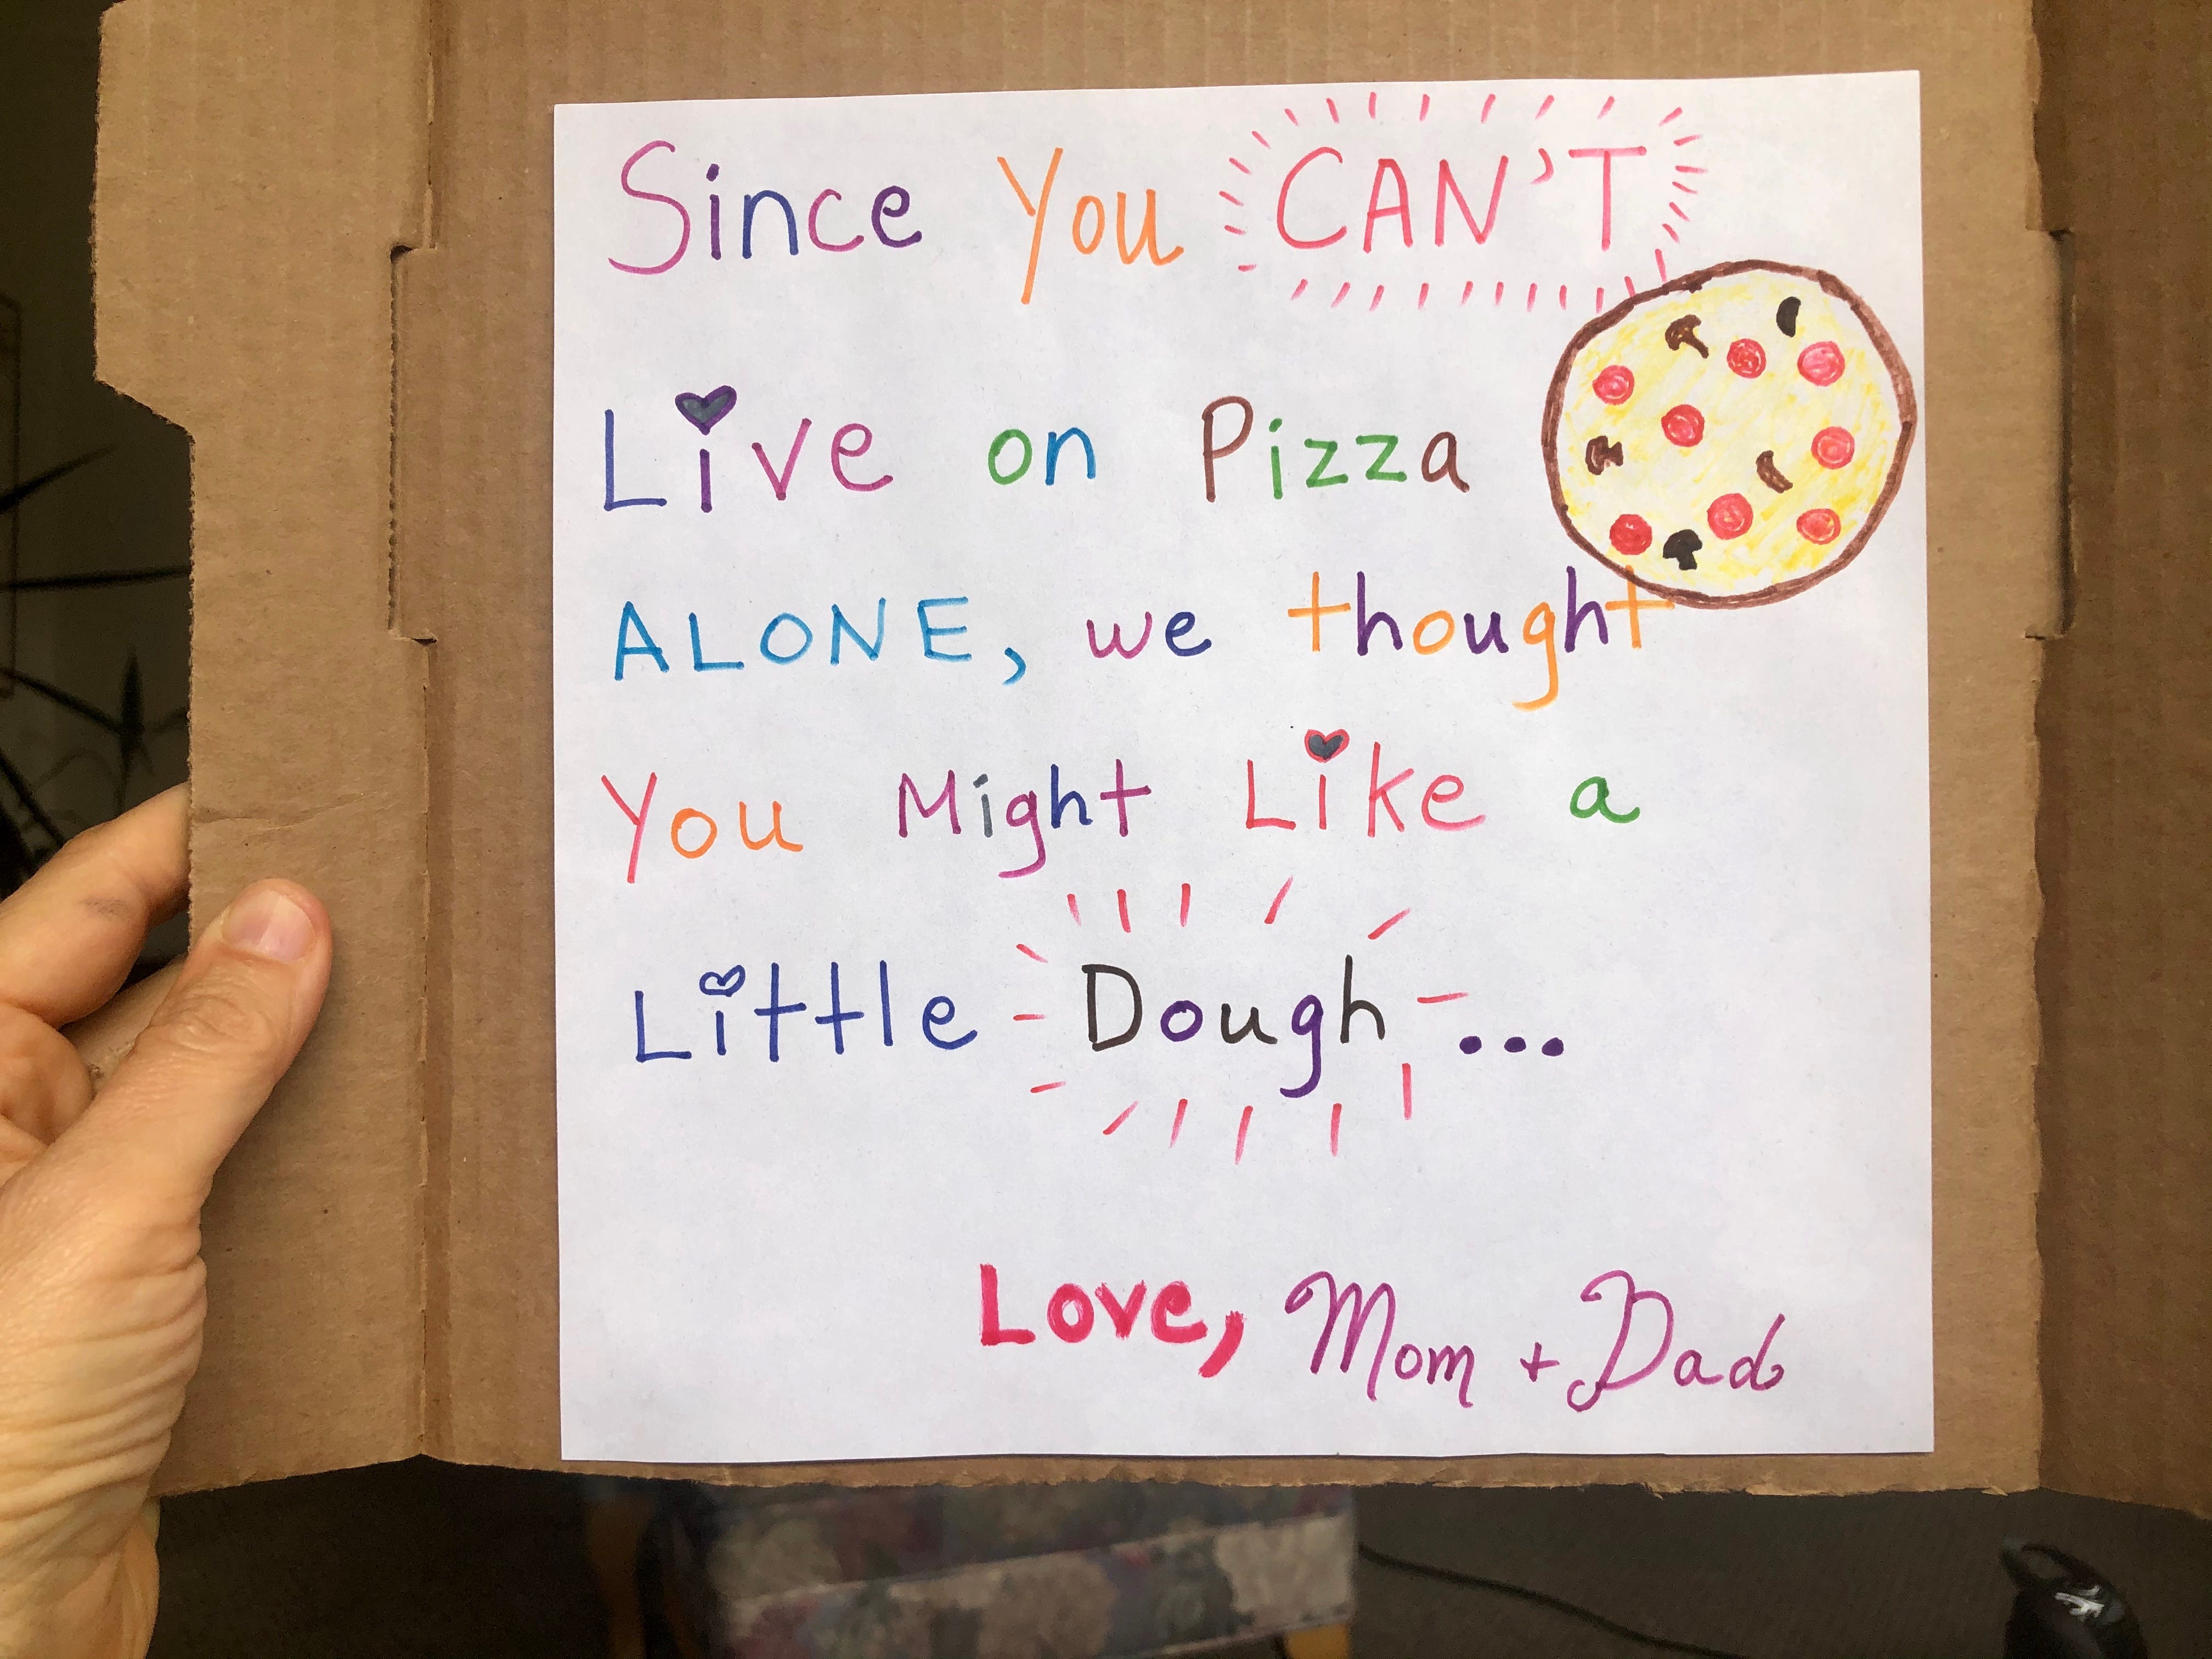 Since You CAN'T
Live on Pizza
ALONE, we thought
You Might Like a
Little Dough...
Love, Mom + Dad